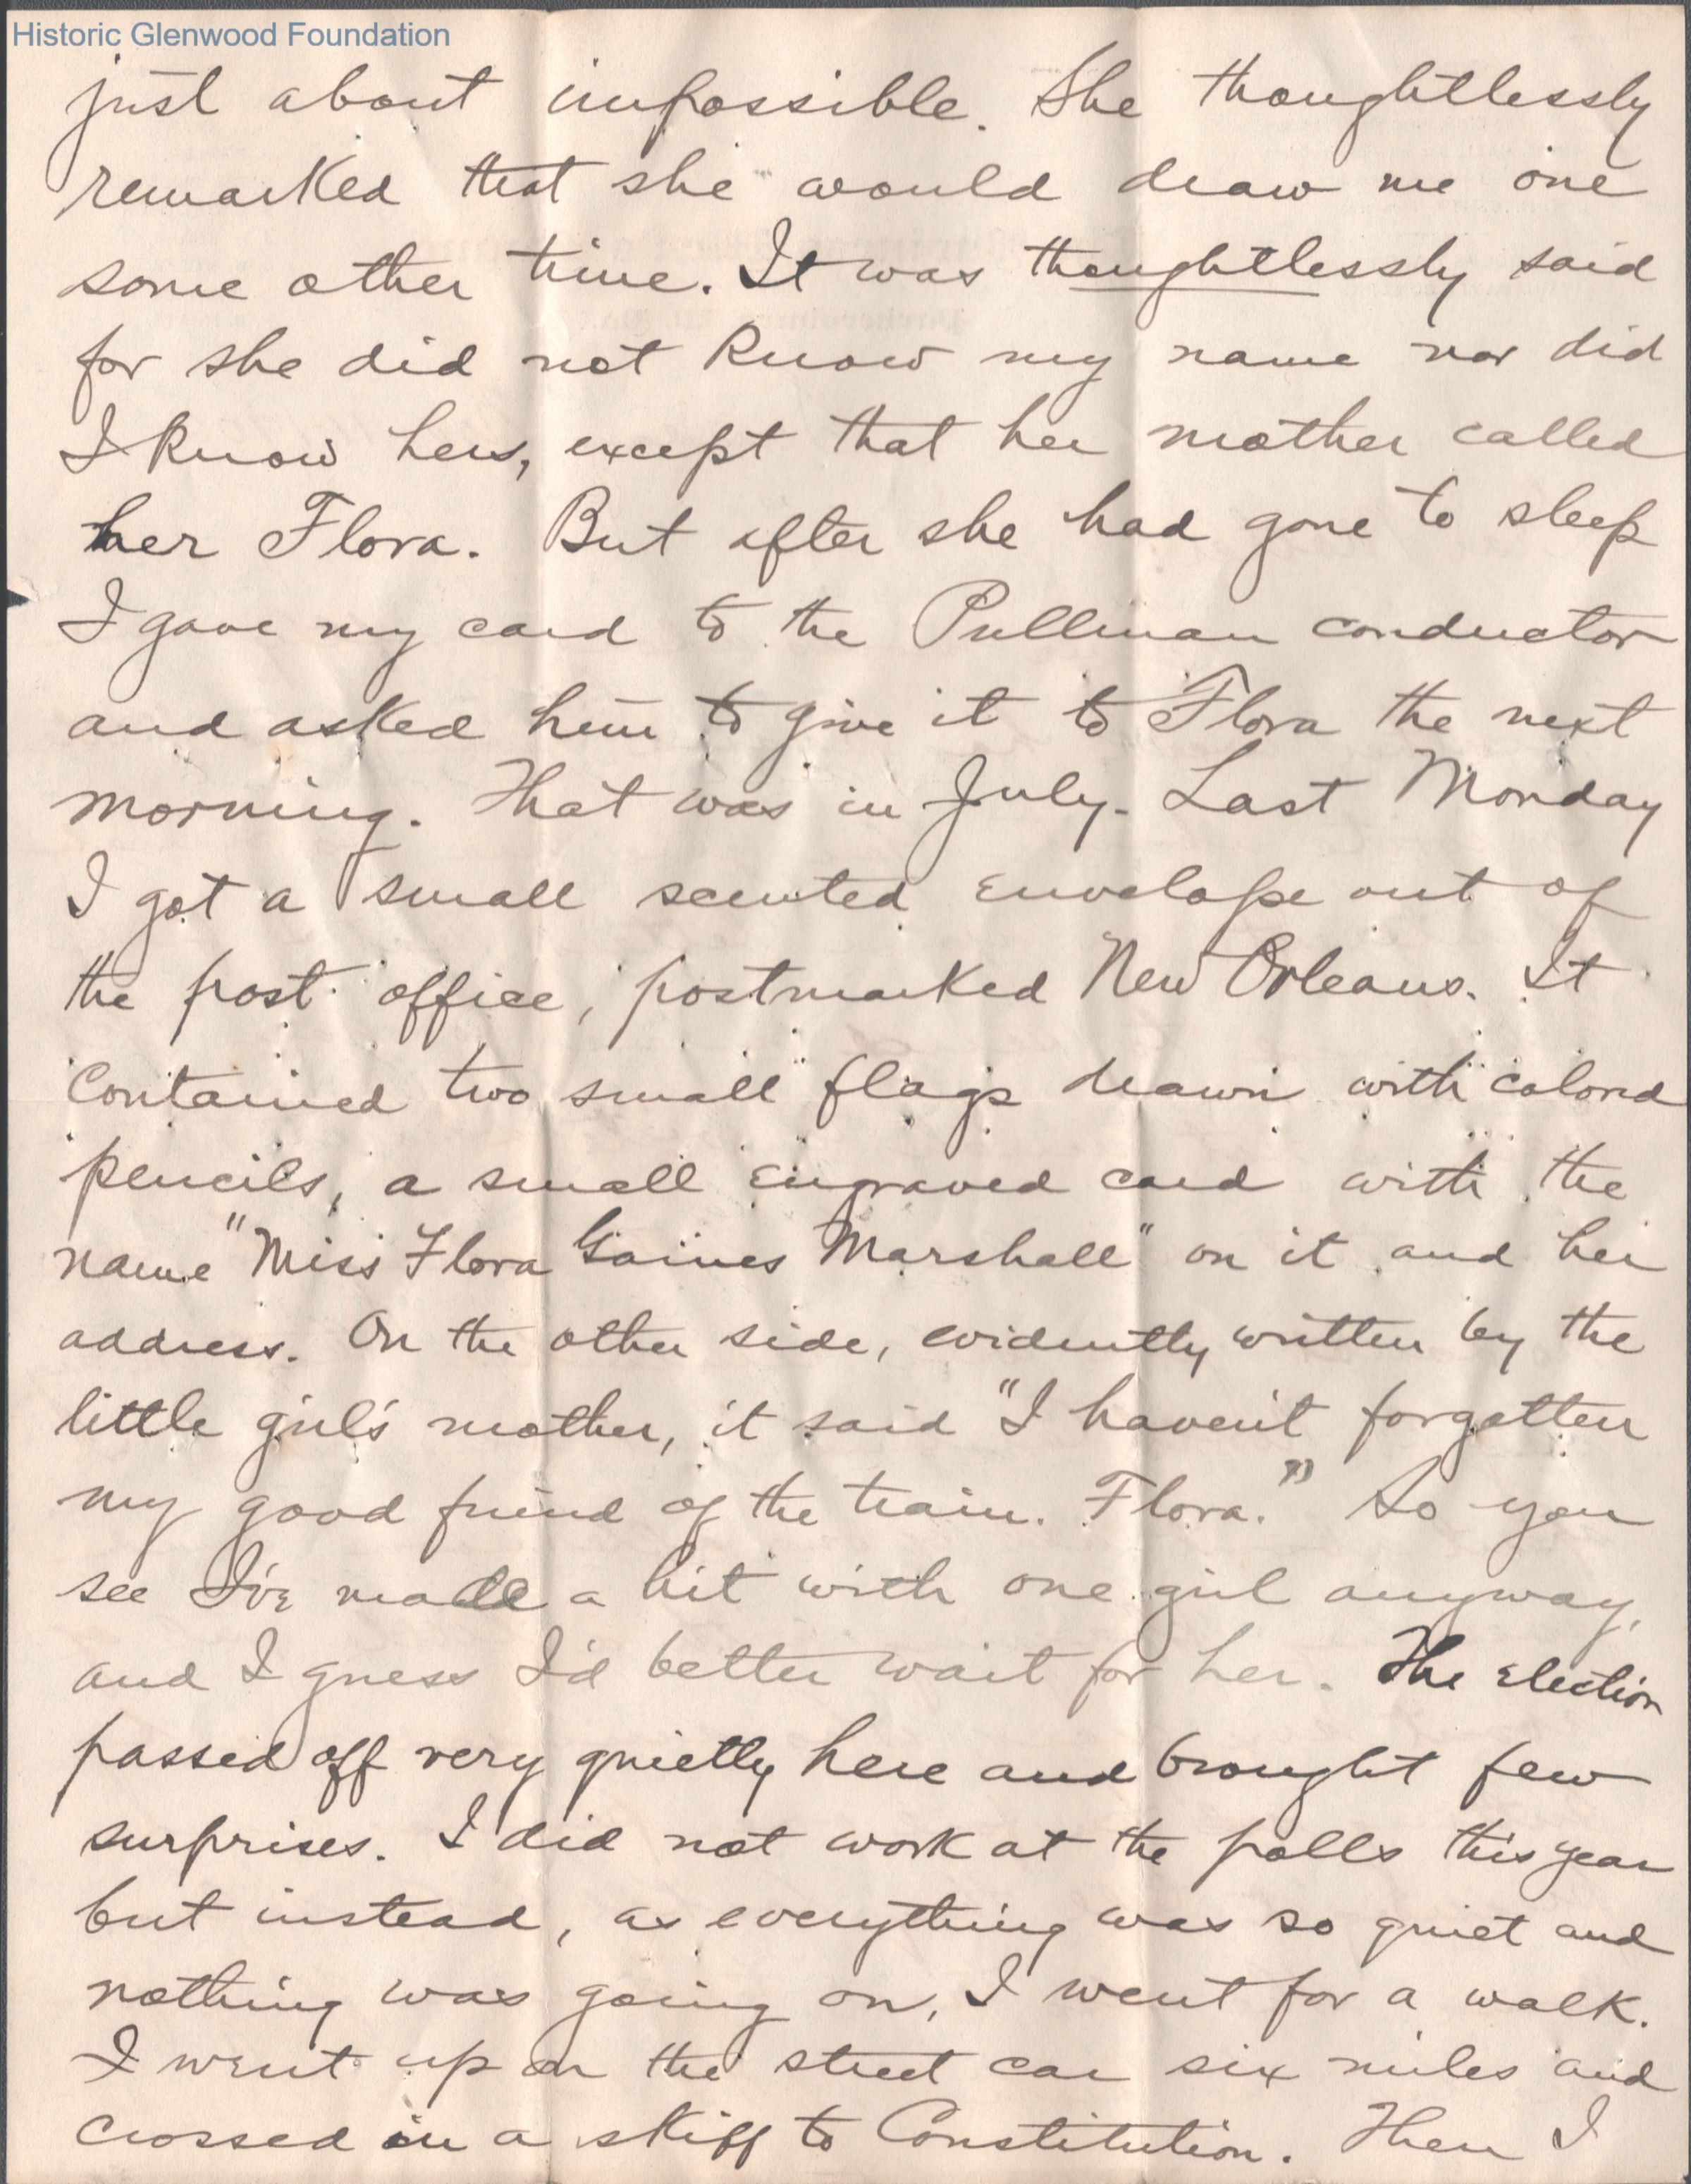 Historic Glenwood Foundation
just about impossible. She thoughtlessly
remarked that she would draw me one
some other time. It was thoughtlessly said
for she did not know my name nor did
I know hers, except that her mother called
her Flora. But after she had gone to sleep
I gave my card to the Pullman conductor
and asked him to give it to Flora the next
morning. That was in July. Last Monday
I got a small scented envelope out of
the post office, postmarked New Orleans. It
contained two small flags drawn with colored
pencils, a small engraved card with the
name "Miss Flora Gaines Marshall" on it and her
address. On the other side, evidently written by the
little girl's mother, it said "I haven't forgotten
my good friend of the train. Flora." So you
see I've made a hit with one girl anyway,
and I guess I'd better wait for her. The election
passed off very quietly here and brought few
surprises. I did not work at the polls this year
but instead, as everything was so quiet and
nothing was going on, I went for a walk.
I went up on the street car six miles and
crossed in a skiff to Constitution. Then I